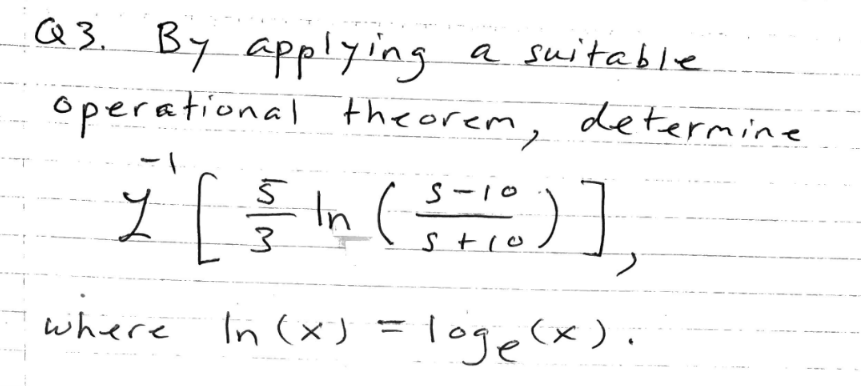 Q3. By applying a suitable
operational theorem, determine
ℒ⁻¹ [ 5/3 ln ( s-10 / s+10 ) ],
where ln(x) = logₑ(x).